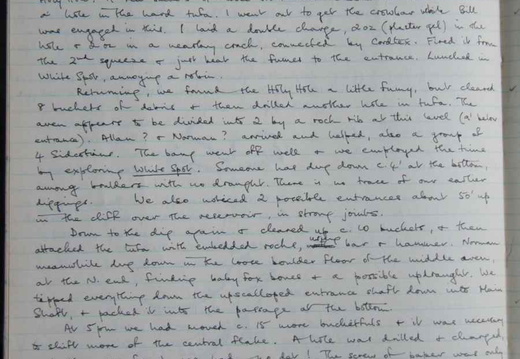 a hole in the hard tufa. I went out to get the crowbar while Bill
was engaged in this. I laid a double charge, 2oz (plaster gel) in the
hole & 2 oz in a nearby crack, connected by Cordtex. Fired it from
the 2nd squeeze & just beat the fumes to the entrance. Lunched in
White Spot, annoying a robin.
Returning, we found the Holy Hole a little fumy, but cleared
8 buckets of debris & then drilled another hole in tufa. The
aven appears to be divided into 2 by a rock rib at this level (9' below
entrance). Allan ? & Norman ? arrived and helped, also a group of
4 Sidcotians. The bang went off well & we employed the time
by exploring White Spot. Someone has dug down c. 4' at the bottom,
among boulders with no draught. There is no trace of our earlier
diggings. We also noticed 2 possible entrances about 50' up
in the cliff over the reservoir, in strong joints.
Down to the dig again & cleared up c. 10 buckets, & then
attacked the tufa with embedded rocks, using bar & hammer. Norman
meanwhile dug down in the loose boulder floor of the middle aven,
at the N. end, finding baby fox bones & a possible updraught. We
tipped everything down the upscalloped entrance shaft down into Main
Shaft, & packed it into the passage at the bottom.
At 5pm we had moved c. 15 more bucketfuls & it was necessary
to shift more of the central flake. A hole was drilled & charged,